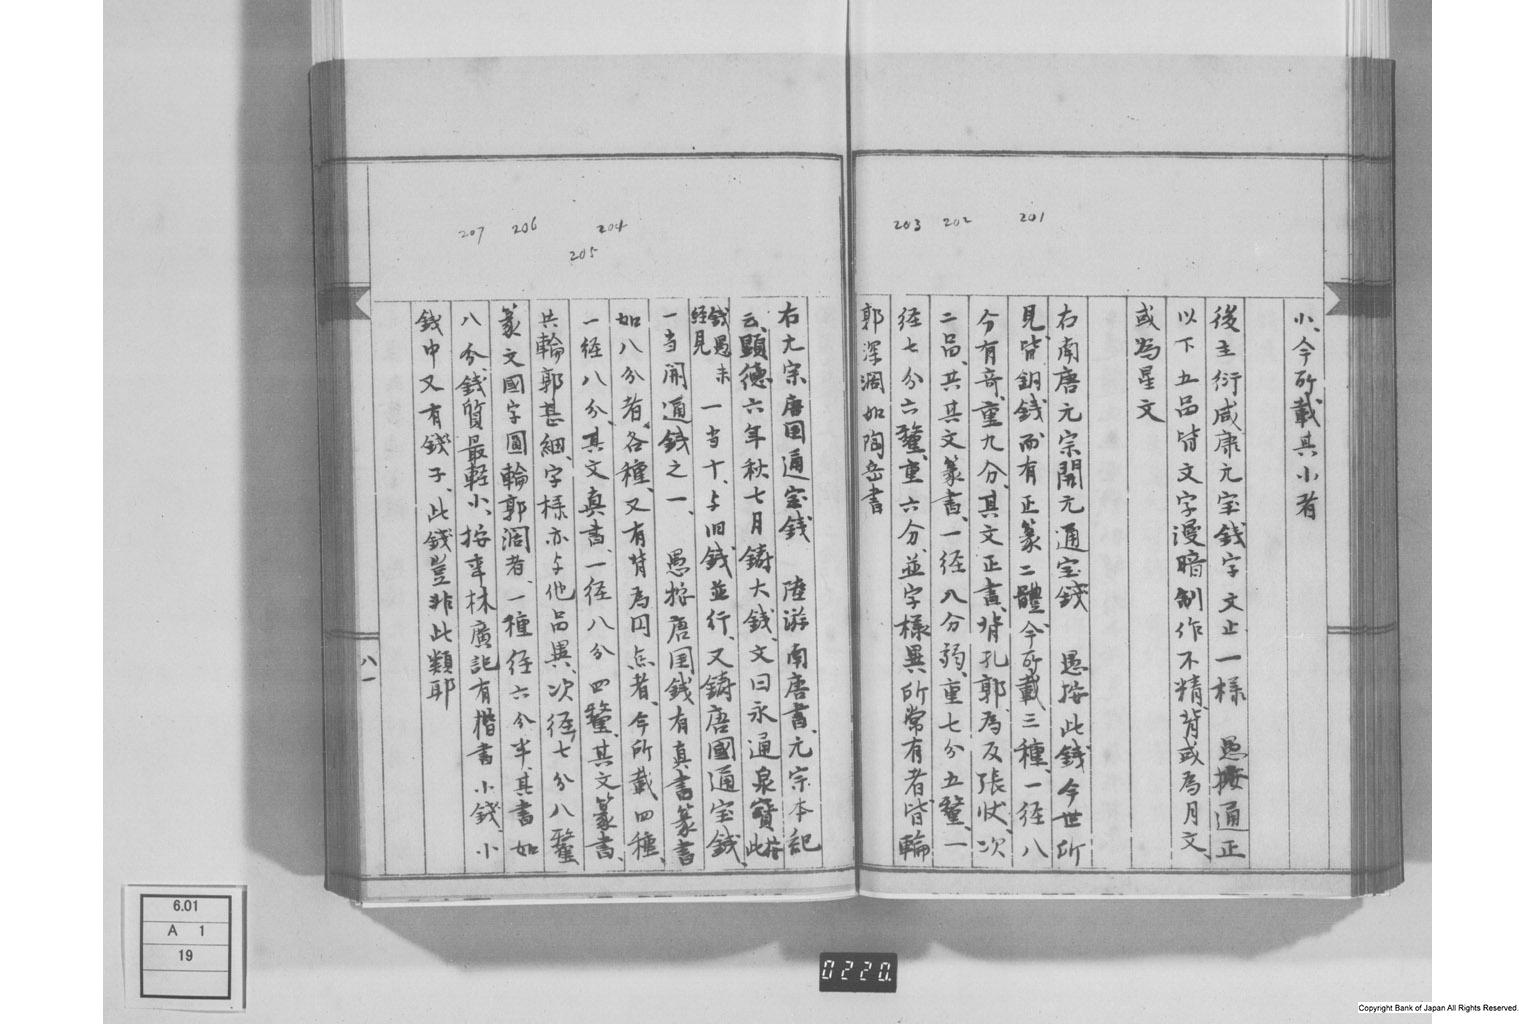 201
202
203
小、今所載其小者
後主衍咸康元宝錢字文止一様　愚按通正
以下五品皆文字漫暗制作不精、背或為月文、
或為星文
右南唐元宗開元通宝錢　愚按此錢今世所
見、皆銅錢而有正篆二體、今所載三種、一径八
分有奇、重九分、其文正書、背孔郭為反張状、次
二品、共其文篆書、一径八分弱、重七分五釐、一
径七分六釐、重六分、並字様異所常有者皆輪
郭深濶如陶岳書
204
205
206
207
右元宗唐国通宝錢　陸游南唐書、元宗本記
云、顕徳六年秋七月鋳大錢、文曰永通泉寶此按
錢愚未経見　一当十、与旧錢並行、又鋳唐國通宝錢、
一当開通錢之一、　愚按唐国錢有真書篆書
如八分者、各種、又有背為円点者、今所載四種、
一径八分、其文真書、一径八分四釐、其文篆書、
共輪郭甚細、字様亦与他品異、次径七分八釐
篆文國字圓輪郭濶者、一種径六分半、其書如
八分、錢質最軽小、按事林廣記有楷書小錢、小
錢中又有錢子、此錢豈非此類耶
八一
6.01
A 1
19
0220.
Copyright Bank of Japan All Rights Reserved.